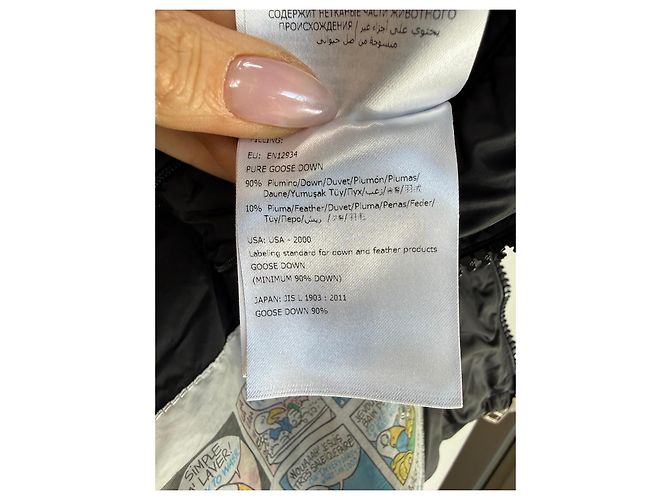 СОДЕРЖИТ НЕТКАНЫЕ ЧАСТИ ЖИВОТНОГО
ПРОИСХОЖДЕНИЯ / يحتوي على أجزاء غير
منسوجة من أصل حيواني
FILLING:
EU: EN12934
PURE GOOSE DOWN
90% Piumino/Down/Duvet/Plumón/Plumas/
Daune/Yumuşak Tüy/Пух/زغب/
10% Piuma/Feather/Duvet/Pluma/Penas/Feder/
Tüy/Перо/ريش/
USA: USA - 2000
Labeling standard for down and feather products
GOOSE DOWN
(MINIMUM 90% DOWN)
JAPAN: JIS L 1903 : 2011
GOOSE DOWN 90%
SIMPLE
LAYER.